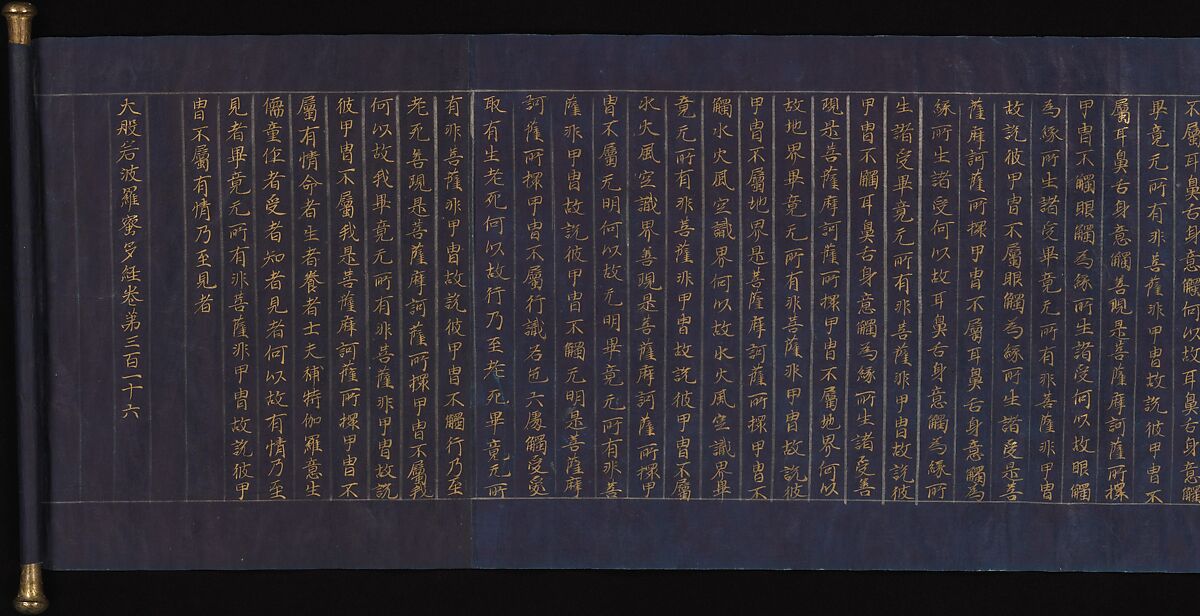 不屬耳鼻舌身意觸何以故耳鼻舌身意觸
畢竟无所有非菩薩非甲冑故說彼甲冑不
屬耳鼻舌身意觸善現是菩薩摩訶薩所擐
甲冑不觸眼觸為緣所生諸受何以故眼觸
為緣所生諸受畢竟无所有非菩薩非甲冑
故說彼甲冑不屬眼觸為緣所生諸受是菩
薩摩訶薩所擐甲冑不屬耳鼻舌身意觸為
緣所生諸受何以故耳鼻舌身意觸為緣所
生諸受畢竟无所有非菩薩非甲冑故說彼
甲冑不觸耳鼻舌身意觸為緣所生諸受善
現是菩薩摩訶薩所擐甲冑不屬地界何以
故地界畢竟无所有非菩薩非甲冑故說彼
甲冑不屬地界是菩薩摩訶薩所擐甲冑不
觸水火風空識界何以故水火風空識界畢
竟无所有非菩薩非甲冑故說彼甲冑不屬
水火風空識界善現是菩薩摩訶薩所擐甲
冑不屬无明何以故无明畢竟无所有非菩
薩非甲冑故說彼甲冑不觸无明是菩薩摩
訶薩所擐甲冑不屬行識名色六處觸受愛
取有生老死何以故行乃至老死畢竟无所
有非菩薩非甲冑故說彼甲冑不觸行乃至
老死善現是菩薩摩訶薩所擐甲冑不屬我
何以故我畢竟无所有非菩薩非甲冑故說
彼甲冑不屬我是菩薩摩訶薩所擐甲冑不
屬有情命者生者養者士夫補特伽羅意生
儒童作者受者知者見者何以故有情乃至
見者畢竟无所有非菩薩非甲冑故說彼甲
冑不屬有情乃至見者
大般若波羅蜜多經卷第三百二十六